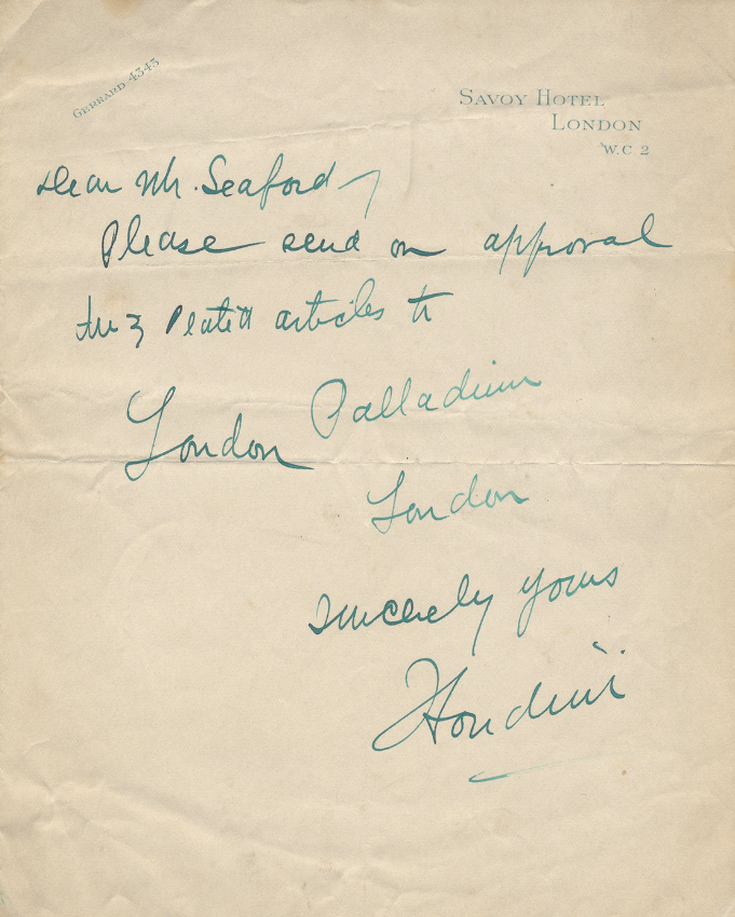 GERRARD 4343
SAVOY HOTEL
LONDON
W.C 2
Dear Mr. Seaford,
Please send on approval
articles to
London Palladium
London
Sincerely yours
Houdini